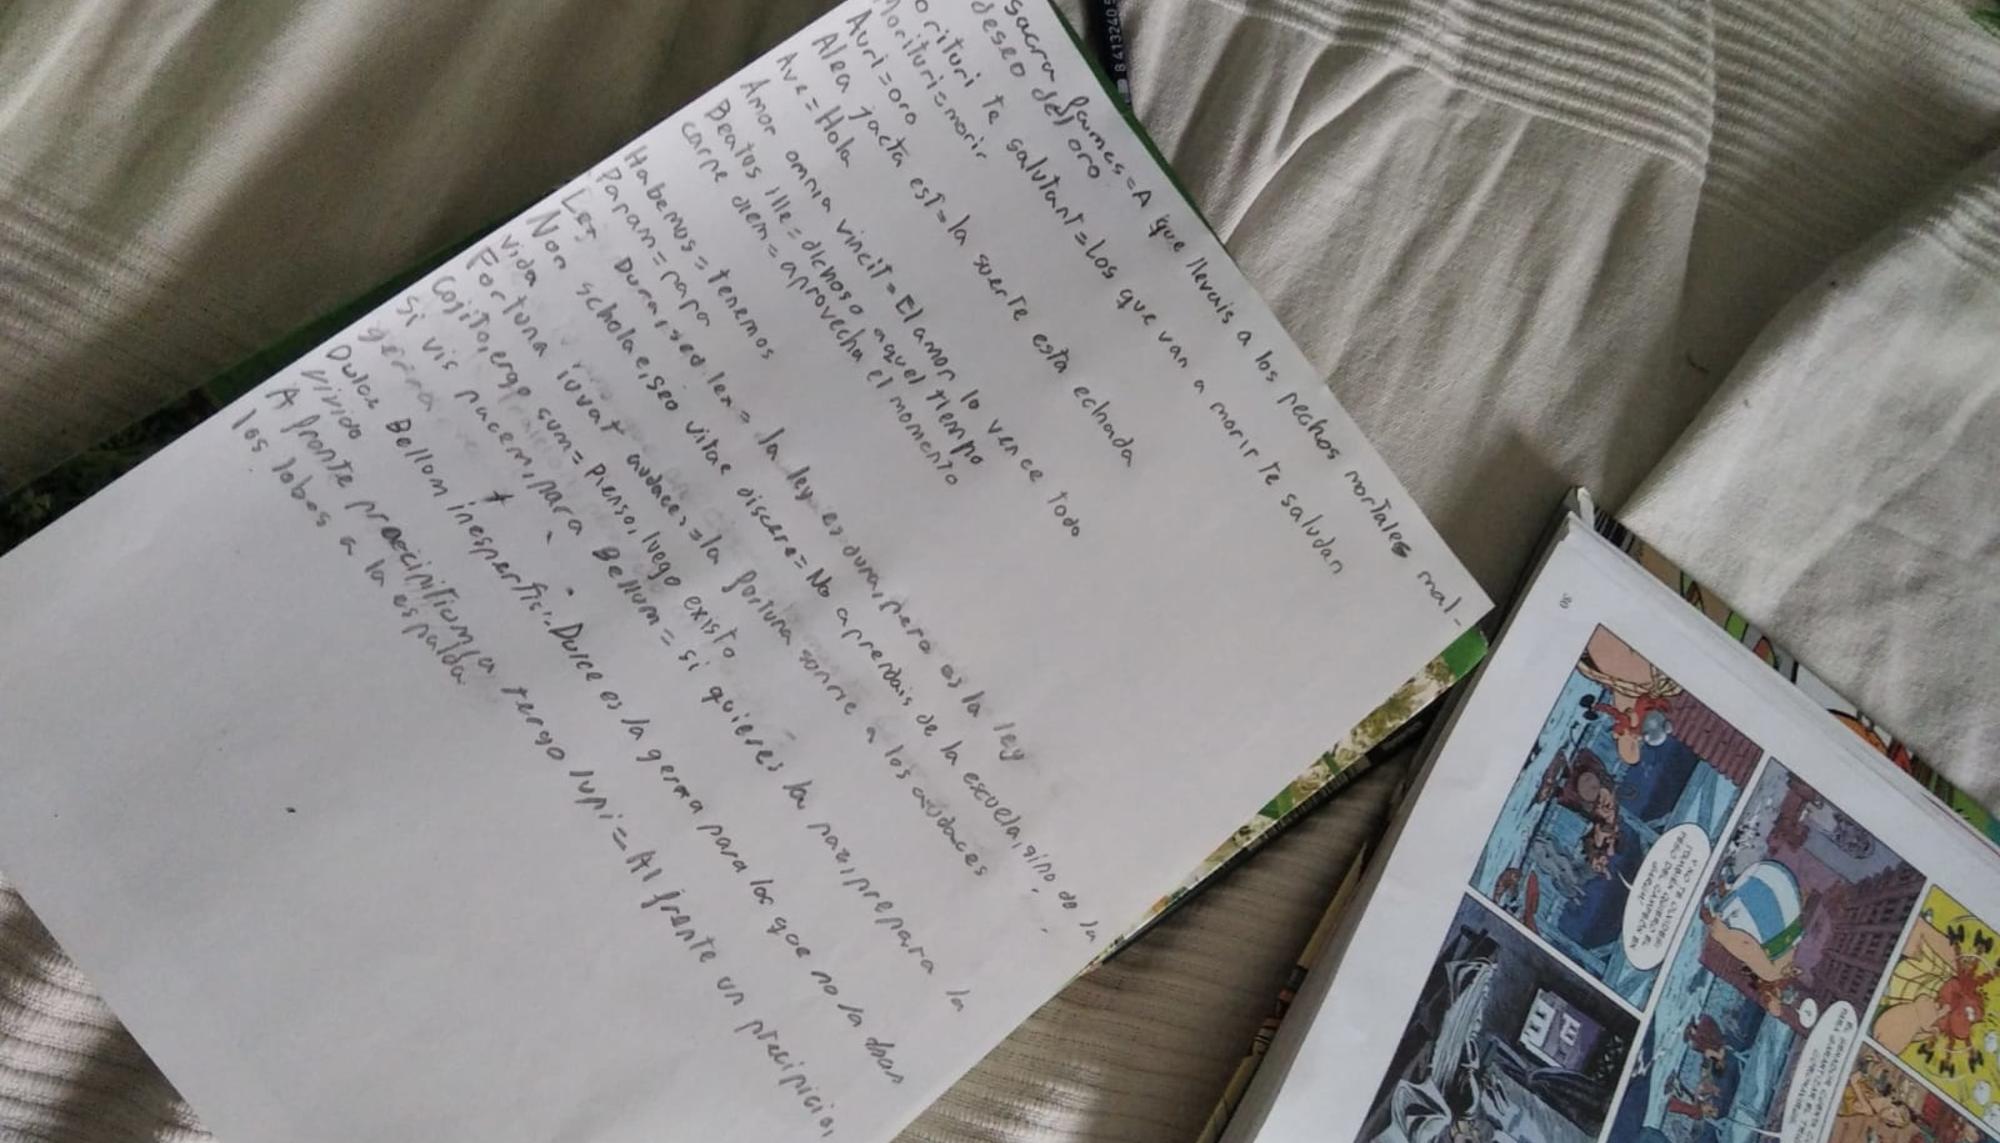 sacra fames = A que llevais a los pechos mortales mal-
deseo del oro
orituri te salutant = Los que van a morir te saludan
Morituri = morir
Auri = oro
Alea jacta est = la suerte esta echada
Ave = Hola
Amor omnia vincit = El amor lo vence todo
Beatus ille = dichoso aquel tiempo
carpe diem = aprovecha el momento
Habemus = tenemos
Papam = papa
Lex Dura, sed lex = la ley es dura, pero es la ley
Non scholae, seo vitae discere = No aprendais de la escuela, sino de la
vida
Fortuna iuvat audaces = la fortuna sonrie a los audaces
Cojito, ergo sum = Pienso, luego existo
si vis pacem, para Bellum = si quieres la paz, prepara la
gerra
Dulce Bellom inespertis: Dulce es la gerra para los que no la aban
vivido
A fronte praecipitium, a tergo lupi = Al frente un precipicio,
los lobos a la espalda
8 413240
30
Y NO TE OLVIDES!
¡TAMBIÉN QUIERO EL
PELO DEL CAMPEÓN EN